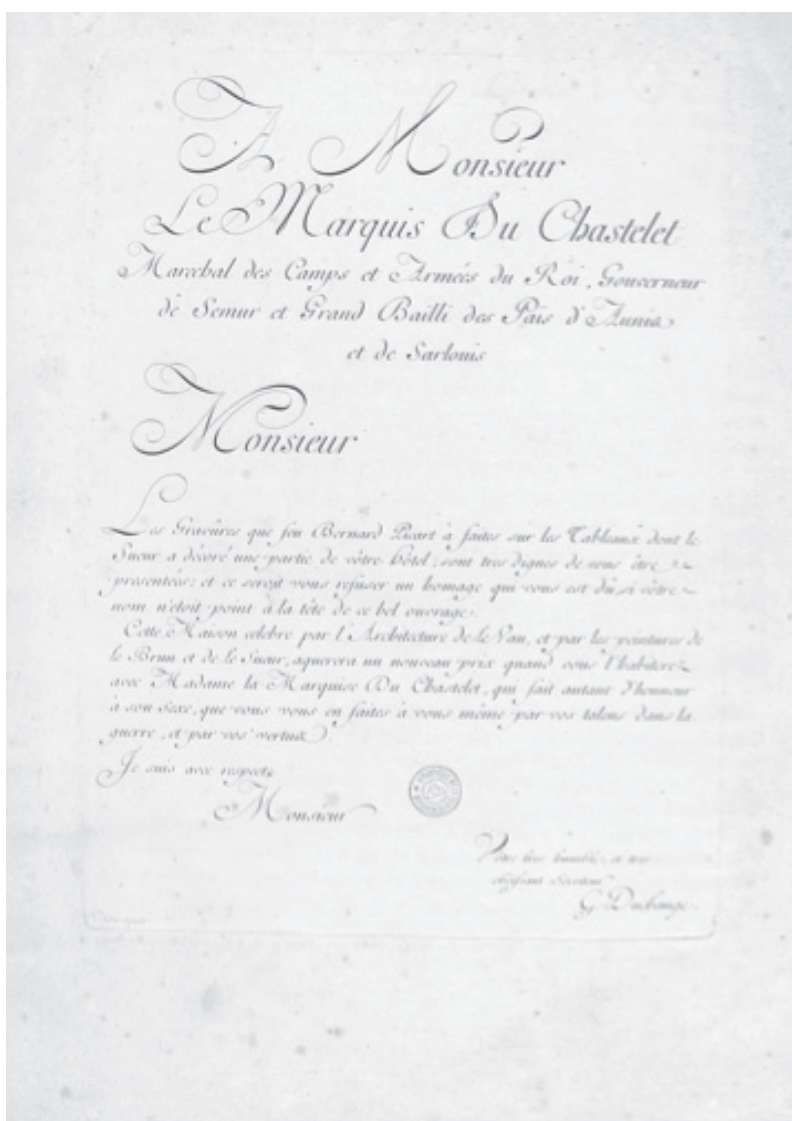 A Monsieur
Le Marquis Du Chastelet
Marechal des Camps et Armées du Roi, Gouverneur
de Semur et Grand Bailli des Païs d'Aunia
et de Sarlouis
Monsieur
Les Gravûres que feu Bernard Picart à faites sur les Tableaux dont le
Sueur a décoré une partie de vôtre hôtel, sont tres dignes de vous être
presentées: et ce seroit vous refuser un homage qui vous est dû, si vôtre
nom n'étoit point à la tête de ce bel ouvrage.
Cette Maison celebre par l'Architecture de le Vau, et par les peintures de
le Brun et de le Sueur, aquerera un nouveau prix quand vous l'habiterez
avec Madame la Marquise Du Chastelet, qui fait autant d'honneur
à son Sexe, que vous vous en faites à vous même par vos talens dans la
guerre, et par vos vertus.
Je suis avec respect
Monsieur
Votre tres humble et tres
obeissant Serviteur
G. Duchange